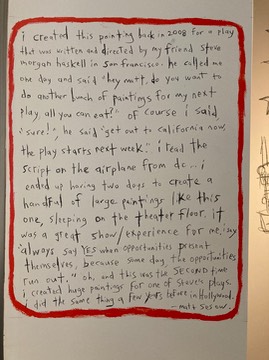 i created this painting back in 2008 for a play
that was written and directed by my friend steve
morgan haskell in san francisco. he called me
one day and said "hey matt, do you want to
do another bunch of paintings for my next
play, all you can eat?" of course i said
"sure!", he said "get out to california now,
the play starts next week." i read the
script on the airplane from dc... i
ended up having two days to create a
handful of large paintings like this
one, sleeping on the theater floor. it
was a great show/experience for me, i say
"always say YES when opportunities present
themselves, because some day the opportunities
run out." oh, and this was the SECOND time
i created huge paintings for one of steve's plays.
i did the same thing a few years before in Hollywood.
- matt sesow.